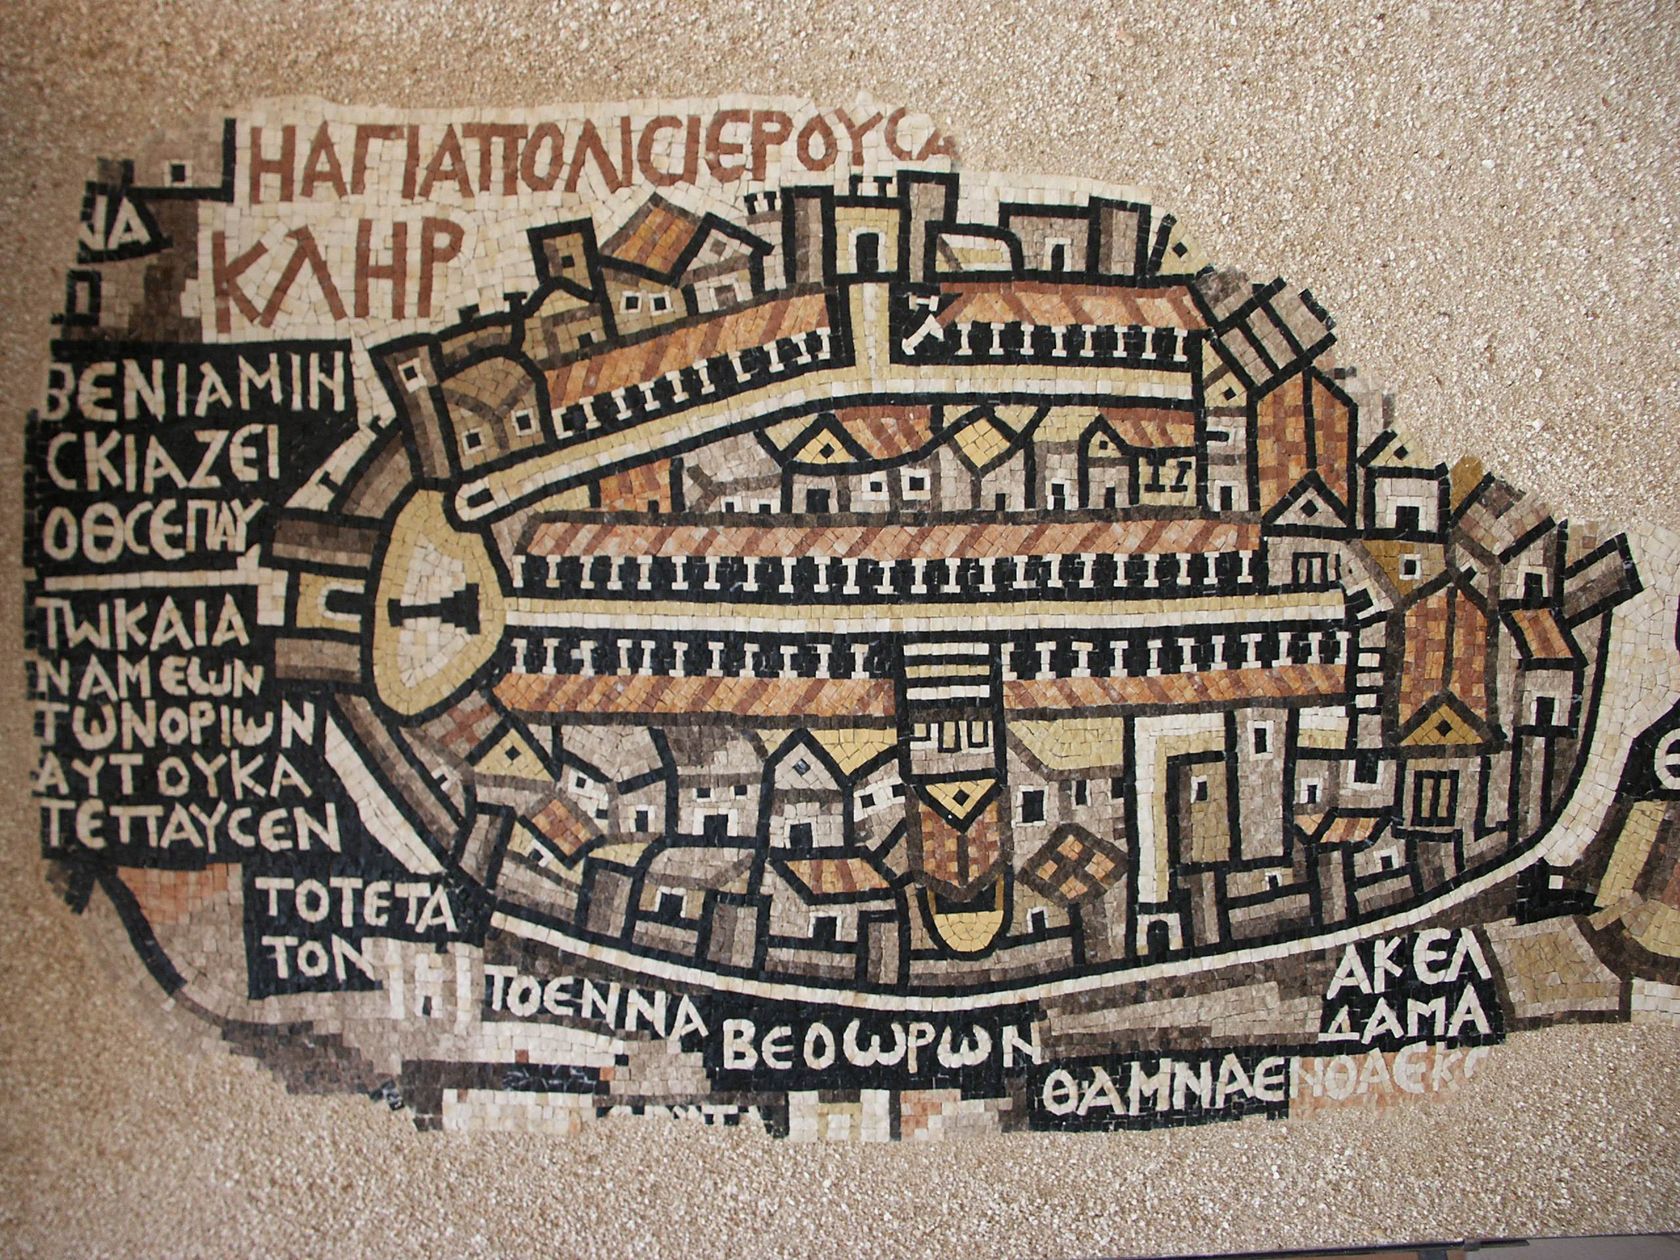 ΗΑΓΙΑΠΟΛΙϹΙΕΡΟΥϹΑ
ΚΛΗΡ
ΝΑ
ΒΕΝΙΑΜΙΝ
ϹΚΙΑΖΕΙ
ΟΘϹΕΠΑΥ
ΤѠΚΑΙΑ
ΝΑΜΕѠΝ
ΤѠΝΟΡΙѠΝ
ΑΥΤΟΥΚΑ
ΤΕΠΑΥϹΕΝ
ΤΟΤΕΤΑ
ΤΟΝ
ΤΟΕΝΝΑ
ΒΕΟѠΡѠΝ
ΑΚΕΛ
ΔΑΜΑ
ΘΑΜΝΑΕΝΘΑΕΚΕ